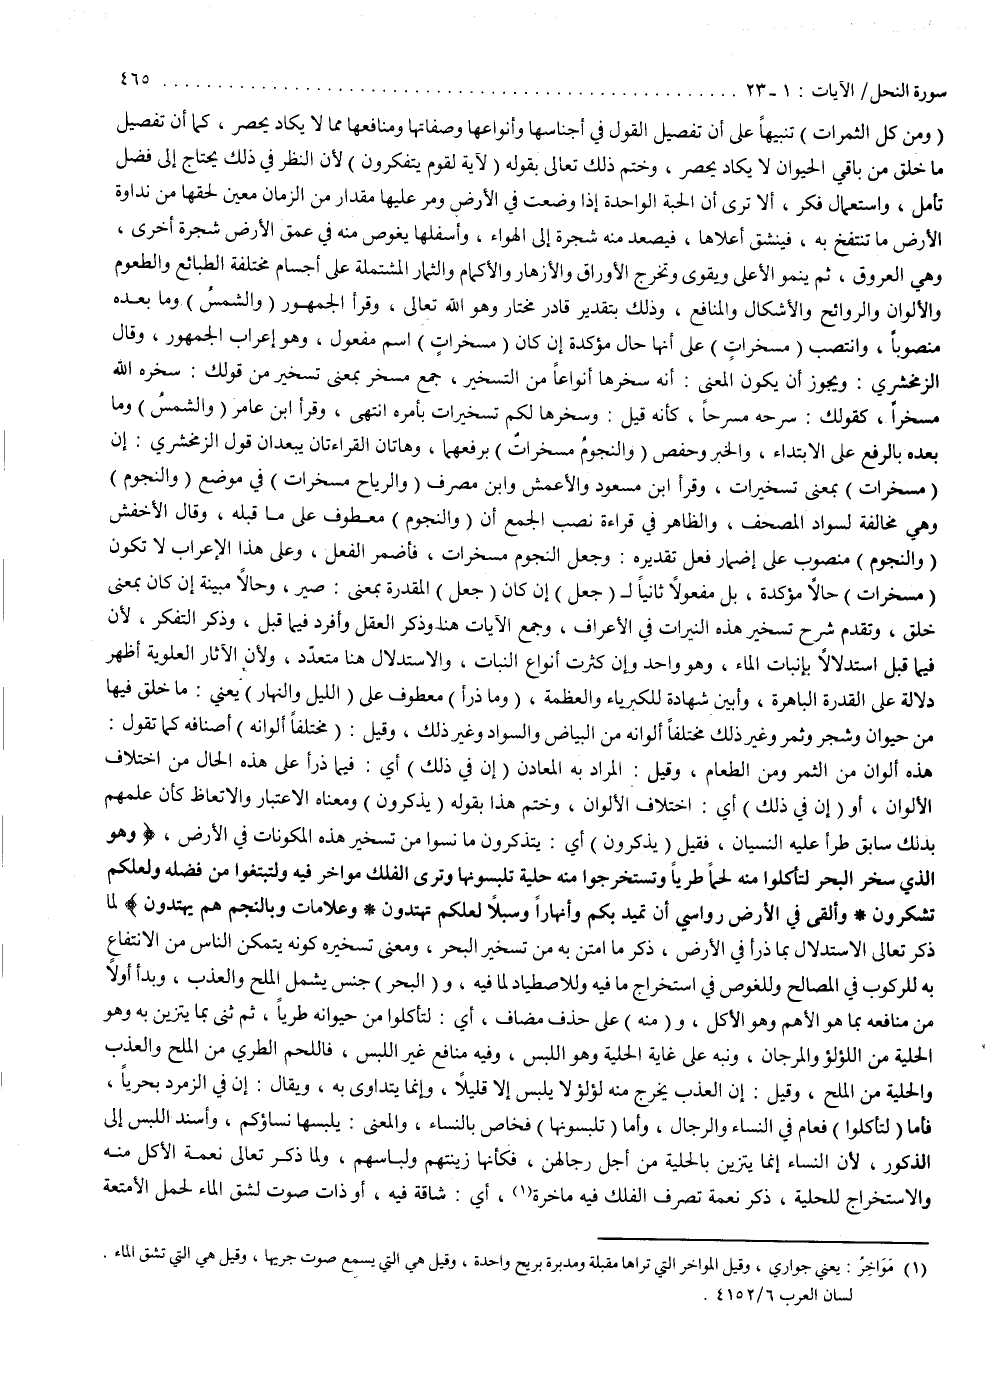 سورة النحل/ الآيات : ١ - ٢٣ . . . . . . . . . . . . . . . . . . . . . . . . . . . . . . . . . . . . . . . . . ٤٦٥
( ومن كل الثمرات ) تنبيهاً على أن تفصيل القول في أجناسها وأنواعها وصفاتها ومنافعها مما لا يكاد يحصر ، كما أن تفصيل
ما خلق من باقي الحيوان لا يكاد يحصر ، وختم ذلك تعالى بقوله ( لآية لقوم يتفكرون ) لأن النظر في ذلك يحتاج إلى فضل
تأمل ، واستعمال فكر ، ألا ترى أن الحبة الواحدة إذا وضعت في الأرض ومر عليها مقدار من الزمان معين لحقها من نداوة
الأرض ما تنتفخ به ، فينشق أعلاها ، فيصعد منه شجرة إلى الهواء ، وأسفلها يغوص منه في عمق الأرض شجرة أخرى ،
وهي العروق ، ثم ينمو الأعلى ويقوى وتخرج الأوراق والأزهار والأكمام والثمار المشتملة على أجسام مختلفة الطبائع والطعوم
والألوان والروائح والأشكال والمنافع ، وذلك بتقدير قادر مختار وهو الله تعالى ، وقرأ الجمهور ( والشمسُ ) وما بعده
منصوباً ، وانتصب ( مسخراتٍ ) على أنها حال مؤكدة إن كان ( مسخراتٍ ) اسم مفعول ، وهو إعراب الجمهور ، وقال
الزمخشري : ويجوز أن يكون المعنى : أنه سخرها أنواعاً من التسخير ، جمع مسخر بمعنى تسخير من قولك : سخره الله
مسخراً ، كقولك : سرحه مسرحاً ، كأنه قيل : وسخرها لكم تسخيرات بأمره انتهى ، وقرأ ابن عامر ( والشمسُ ) وما
بعده بالرفع على الابتداء ، والخبر وحفص ( والنجومُ مسخراتٌ ) برفعهما ، وهاتان القراءتان يبعدان قول الزمخشري : إن
( مسخرات ) بمعنى تسخيرات ، وقرأ ابن مسعود والأعمش وابن مصرف ( والرياح مسخرات ) في موضع ( والنجوم )
وهي مخالفة لسواد المصحف ، والظاهر في قراءة نصب الجمع أن ( والنجوم ) معطوف على ما قبله ، وقال الأخفش
( والنجوم ) منصوب على إضمار فعل تقديره : وجعل النجوم مسخرات ، فأضمر الفعل ، وعلى هذا الإعراب لا تكون
( مسخرات ) حالًا مؤكدة ، بل مفعولًا ثانياً لـ ( جعل ) إن كان ( جعل ) المقدرة بمعنى : صير ، وحالًا مبينة إن كان بمعنى
خلق ، وتقدم شرح تسخير هذه النيرات في الأعراف ، وجمع الآيات هنا وذكر العقل وأفرد فيما قبل ، وذكر التفكر ، لأن
فيما قبل استدلالًا بإنبات الماء ، وهو واحد وإن كثرت أنواع النبات ، والاستدلال هنا متعدّد ، ولأن الآثار العلوية أظهر
دلالة على القدرة الباهرة ، وأبين شهادة للكبرياء والعظمة ، ( وما ذرأ ) معطوف على ( الليل والنهار ) يعني : ما خلق فيها
من حيوان وشجر وثمر وغير ذلك مختلفاً ألوانه من البياض والسواد وغير ذلك ، وقيل : ( مختلفاً ألوانه ) أصنافه كما تقول :
هذه ألوان من الثمر ومن الطعام ، وقيل : المراد به المعادن ( إن في ذلك ) أي : فيما ذرأ على هذه الحال من اختلاف
الألوان ، أو ( إن في ذلك ) أي : اختلاف الألوان ، وختم هذا بقوله ( يذكرون ) ومعناه الاعتبار والاتعاظ كأن علمهم
بذلك سابق طرأ عليه النسيان ، فقيل ( يذكرون ) أي : يتذكرون ما نسوا من تسخير هذه المكونات في الأرض ، ﴿ وهو
الذي سخر البحر لتأكلوا منه لحماً طرياً وتستخرجوا منه حلية تلبسونها وترى الفلك مواخر فيه ولتبتغوا من فضله ولعلكم
تشكرون * وألقى في الأرض رواسي أن تميد بكم وأنهاراً وسبلًا لعلكم تهتدون * وعلامات وبالنجم هم يهتدون ﴾ لما
ذكر تعالى الاستدلال بما ذرأ في الأرض ، ذكر ما امتن به من تسخير البحر ، ومعنى تسخيره كونه يتمكن الناس من الانتفاع
به للركوب في المصالح وللغوص في استخراج ما فيه وللاصطياد لما فيه ، و ( البحر ) جنس يشمل الملح والعذب ، وبدأ أولًا
من منافعه بما هو الأهم وهو الأكل ، و ( منه ) على حذف مضاف ، أي : لتأكلوا من حيوانه طرياً ، ثم ثنى بما يتزين به وهو
الحلية من اللؤلؤ والمرجان ، ونبه على غاية الحلية وهو اللبس ، وفيه منافع غير اللبس ، فاللحم الطري من الملح والعذب
والحلية من الملح ، وقيل : إن العذب يخرج منه لؤلؤ لا يلبس إلا قليلًا ، وإنما يتداوى به ، ويقال : إن في الزمرد بحرياً ،
فأما ( لتأكلوا ) فعام في النساء والرجال ، وأما ( تلبسونها ) فخاص بالنساء ، والمعنى : يلبسها نساؤكم ، وأسند اللبس إلى
الذكور ، لأن النساء إنما يتزين بالحلية من أجل رجالهن ، فكأنها زينتهم ولباسهم ، ولما ذكر تعالى نعمة الأكل منه
والاستخراج للحلية ، ذكر نعمة تصرف الفلك فيه ماخرة(١) ، أي : شاقة فيه ، أو ذات صوت لشق الماء لحمل الأمتعة
(١) مَوَاخِرُ : يعني جواري ، وقيل المواخر التي تراها مقبلة ومدبرة بريح واحدة ، وقيل هي التي يسمع صوت جريها ، وقيل هي التي تشق الماء .
لسان العرب ٤١٥٢/٦ .